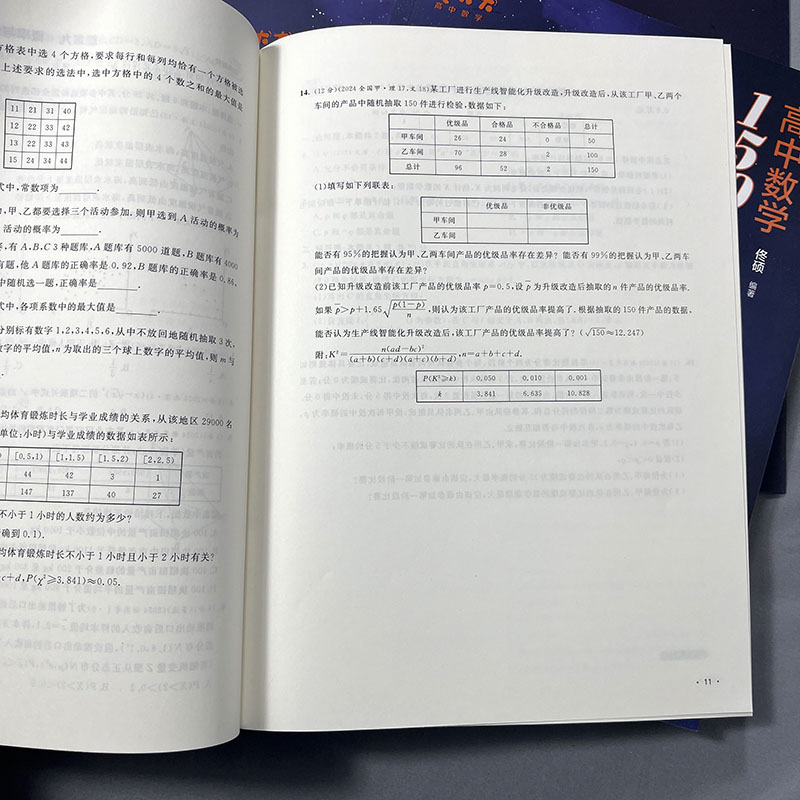 高中数学
方格表中选4个方格,要求每行和每列均恰有一个方格被选
上述要求的选法中,选中方格中的4个数之和的最大值是
11 21 31 40
12 22 33 42
13 22 33 43
15 24 34 44
式中,常数项为________.
为,甲、乙都要选择三个活动参加.则甲选到A活动的概率为
活动的概率为________.
有A,B,C3种题库,A题库有5000道题,B题库有4000
有题,他A题库的正确率是0.92,B题库的正确率是0.86,
中随机选一题,正确率是________.
式中,各项系数中的最大值是________.
分别标有数字1,2,3,4,5,6,从中不放回地随机抽取3次,
数字的平均值,n为取出的三个球上数字的平均值,则m与
均体育锻炼时长与学业成绩的关系,从该地区29000名
单位:小时)与学业成绩的数据如表所示:
[0.5,1) [1,1.5) [1.5,2) [2,2.5)
44 42 3 1
147 137 40 27
不小于1小时的人数约为多少?
确到0.1).
均体育锻炼时长不小于1小时且小于2小时有关?
c+d,P(χ²≥3.841)≈0.05.
14.(12分)(2024全国甲·理17,文18)某工厂进行生产线智能化升级改造,升级改造后,从该工厂甲、乙两个
车间的产品中随机抽取150件进行检验,数据如下:
优级品 合格品 不合格品 总计
甲车间 26 24 0 50
乙车间 70 28 2 100
总计 96 52 2 150
(1)填写如下列联表:
优级品 非优级品
甲车间
乙车间
能否有95%的把握认为甲、乙两车间产品的优级品率存在差异?能否有99%的把握认为甲、乙两车
间产品的优级品率存在差异?
(2)已知升级改造前该工厂产品的优级品率p=0.5,设p̄为升级改造后抽取的n件产品的优级品率.
如果p̄>p+1.65√(p(1-p)/n),则认为该工厂产品的优级品率提高了.根据抽取的150件产品的数据,
能否认为生产线智能化升级改造后,该工厂产品的优级品率提高了?(√150≈12.247)
附:K²=n(ad-bc)²/((a+b)(c+d)(a+c)(b+d)),n=a+b+c+d.
P(K²≥k) 0.050 0.010 0.001
k 3.841 6.635 10.828
·11·
高中数学
150
佟硕 编著